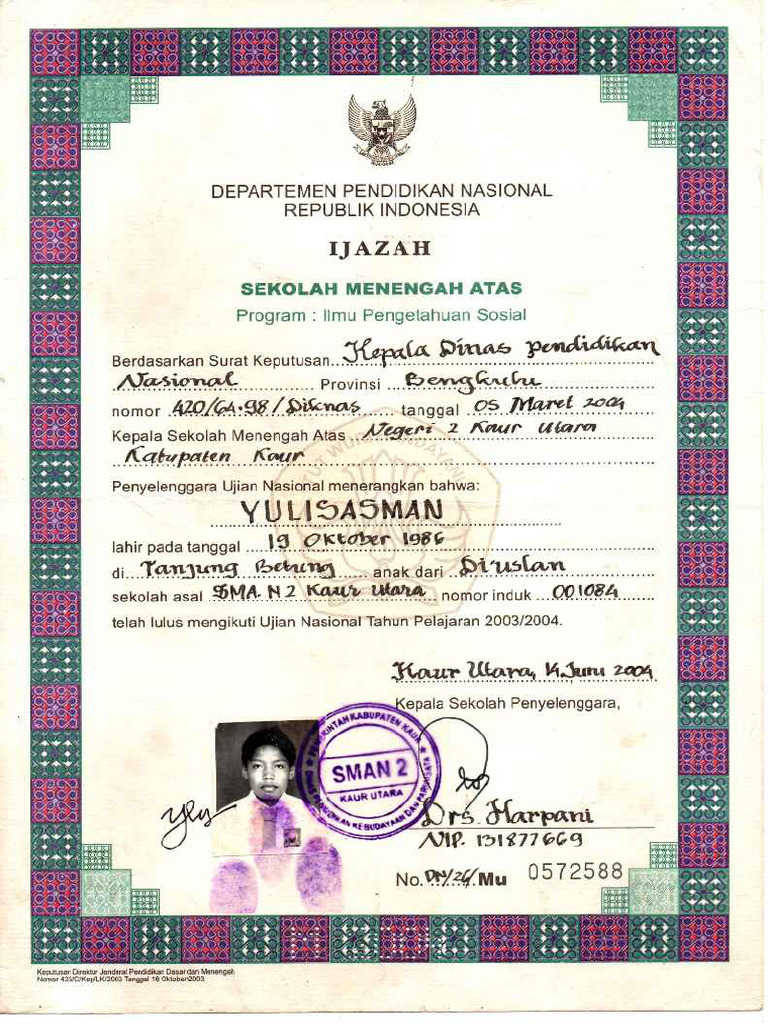 DEPARTEMEN PENDIDIKAN NASIONAL
REPUBLIK INDONESIA
IJAZAH
SEKOLAH MENENGAH ATAS
Program : Ilmu Pengetahuan Sosial
Berdasarkan Surat Keputusan Kepala Dinas Pendidikan
Nasional Provinsi Bengkulu
nomor 420/64.98/Diknas tanggal 05 Maret 2004
Kepala Sekolah Menengah Atas Negeri 2 Kaur Utara
Kabupaten Kaur
Penyelenggara Ujian Nasional menerangkan bahwa:
YULISASMAN
lahir pada tanggal 19 Oktober 1986
di Tanjung Betung anak dari Diruslan
sekolah asal SMA. N 2 Kaur Utara nomor induk 001084
telah lulus mengikuti Ujian Nasional Tahun Pelajaran 2003/2004.
Kaur Utara, 14 Juni 2004
Kepala Sekolah Penyelenggara,
PEMERINTAH KABUPATEN KAUR
SMAN 2
KAUR UTARA
DINAS PENDIDIKAN KEBUDAYAAN DAN PARIWISATA
Drs. Harpani
NIP. 131877669
No. DN/26/Mu 0572588
Keputusan Direktur Jenderal Pendidikan Dasar dan Menengah
Nomor 435/C/Kep/LK/2003 Tanggal 16 Oktober 2003